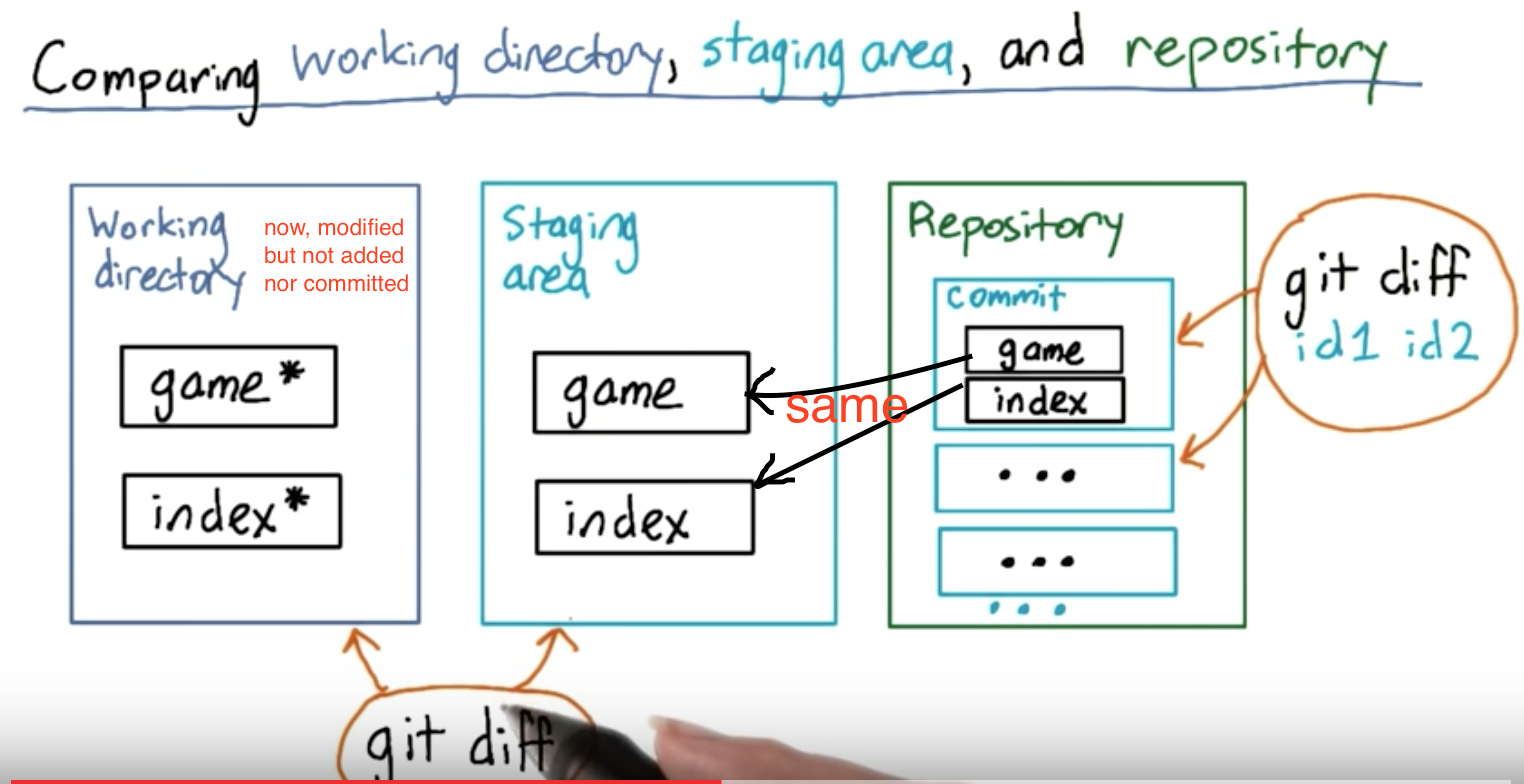 Comparing working directory, staging area, and repository
Working
directory
now, modified
but not added
nor committed
game*
index*
Staging
area
game
index
same
Repository
commit
game
index
...
...
...
git diff
id1 id2
git diff